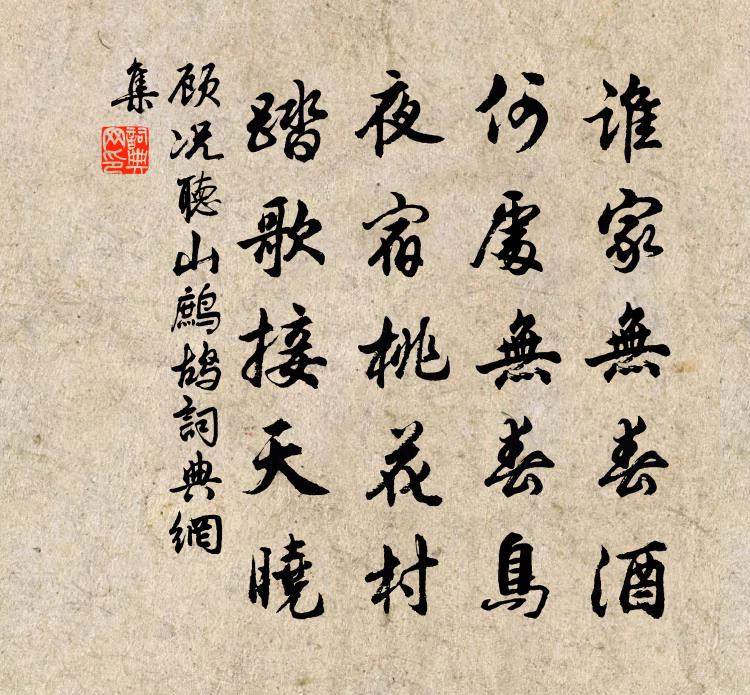 誰家無春酒
何處無春鳥
夜宿桃花村
踏歌接天曉
顧況聽山鷓鴣詞典網
集
詞典
網印